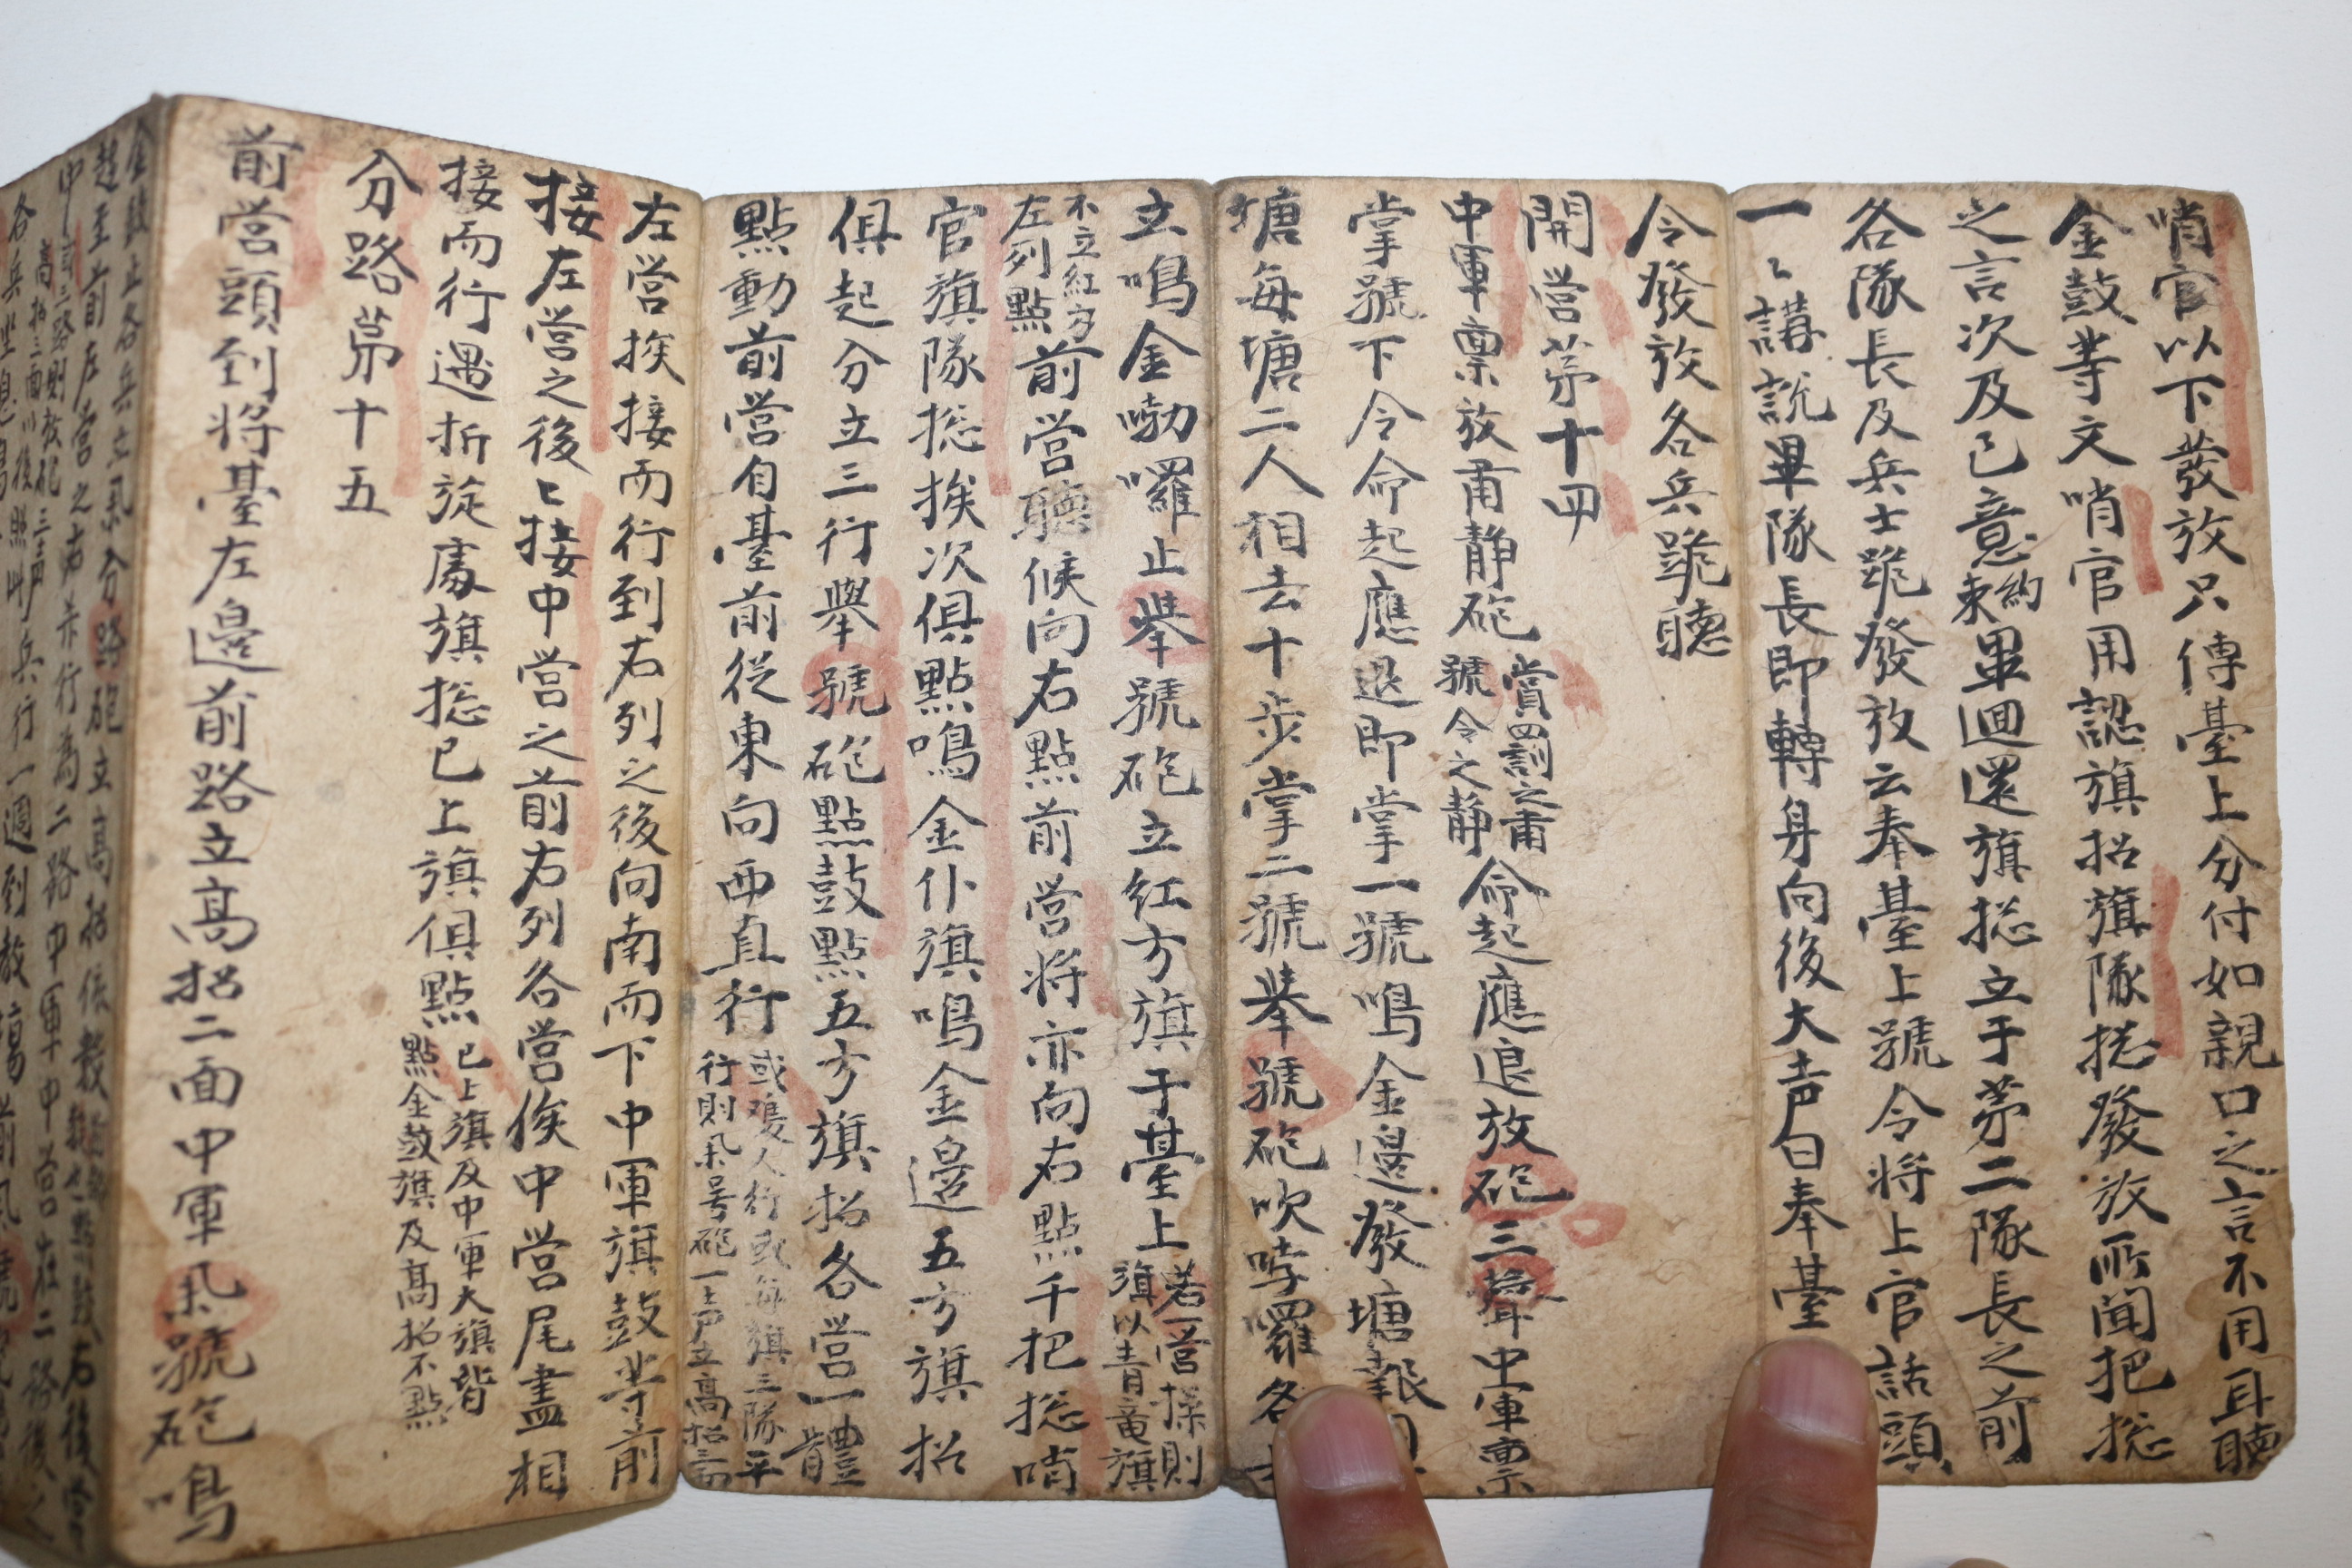 哨官以下發放只傳臺上分付如親口之言不用耳聽
金鼓等文哨官用認旗招旗隊摠發放所聞把摠
之言次及已意約束畢迴還旗摠立于苐二隊長之前
各隊長及兵士跪發放云奉臺上號令将上官話頭
一〻講説畢隊長即轉身向後大声曰奉臺
令發放各兵跪聽
開営苐十四
中軍禀放肅静砲賞罰之肅號令之静命起應退放砲三聲中軍禀
掌號下令命起應退即掌一號鳴金邉發塘報
塘每塘二人相去十步掌二號舉號砲吹哱囉各
立鳴金哱囉止举號砲立紅方旗于臺上若一営操則旗以青竜旗
不立紅方左列點前営聽候向右點前営将亦向右點千把摠哨
官旗隊摠挨次俱點鳴金仆旗鳴金邉五方旗招
俱起分立三行舉號砲點鼓點五方旗招各営一體
點動前営自臺前從東向西直行或雙人行或每旗三隊平行則 号砲一声立高招三面
左営挨接而行到右列之後向南而下中軍旗鼓等前
接左営之後〻接中営之前右列各営俟中営尾盡相
接而行遇折旋處旗摠已上旗俱點已上旗及中軍大旗皆點金鼓旗及高招不點
分路苐十五
前営頭到将臺左邉前路立高招二面中軍 號砲鳴
金鼓止各兵立 分路砲立高招
趍至前左営之右亦行為二路中軍中営在二路後之
各兵坐息